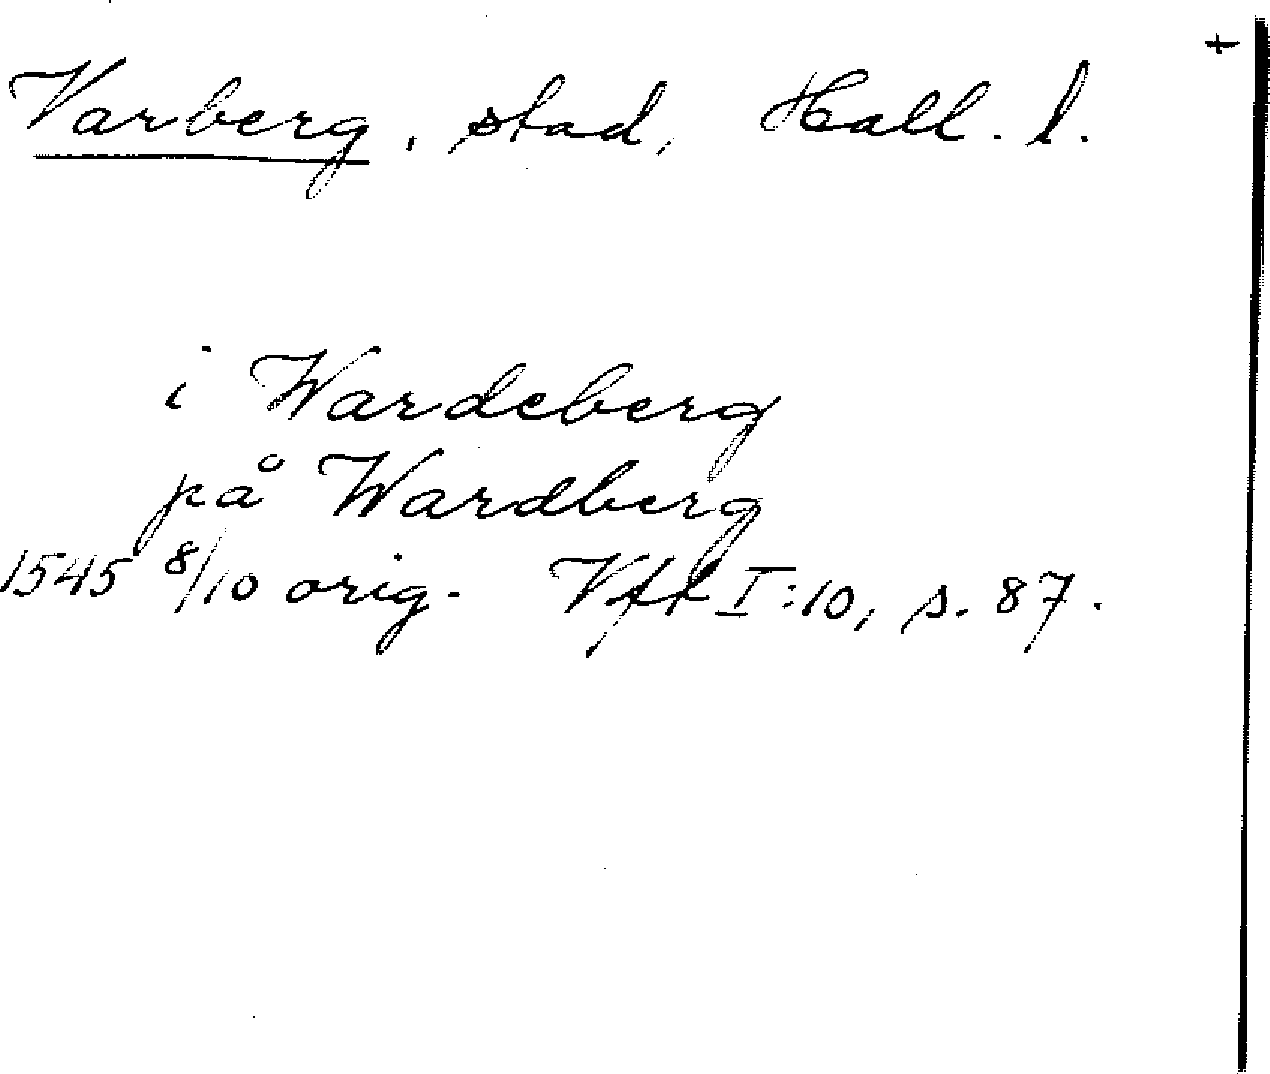 +
Varberg, stad, Hall. l.
i Wardeberg
på Wardberg
1545 8/10 orig. Vff I:10, s. 87.